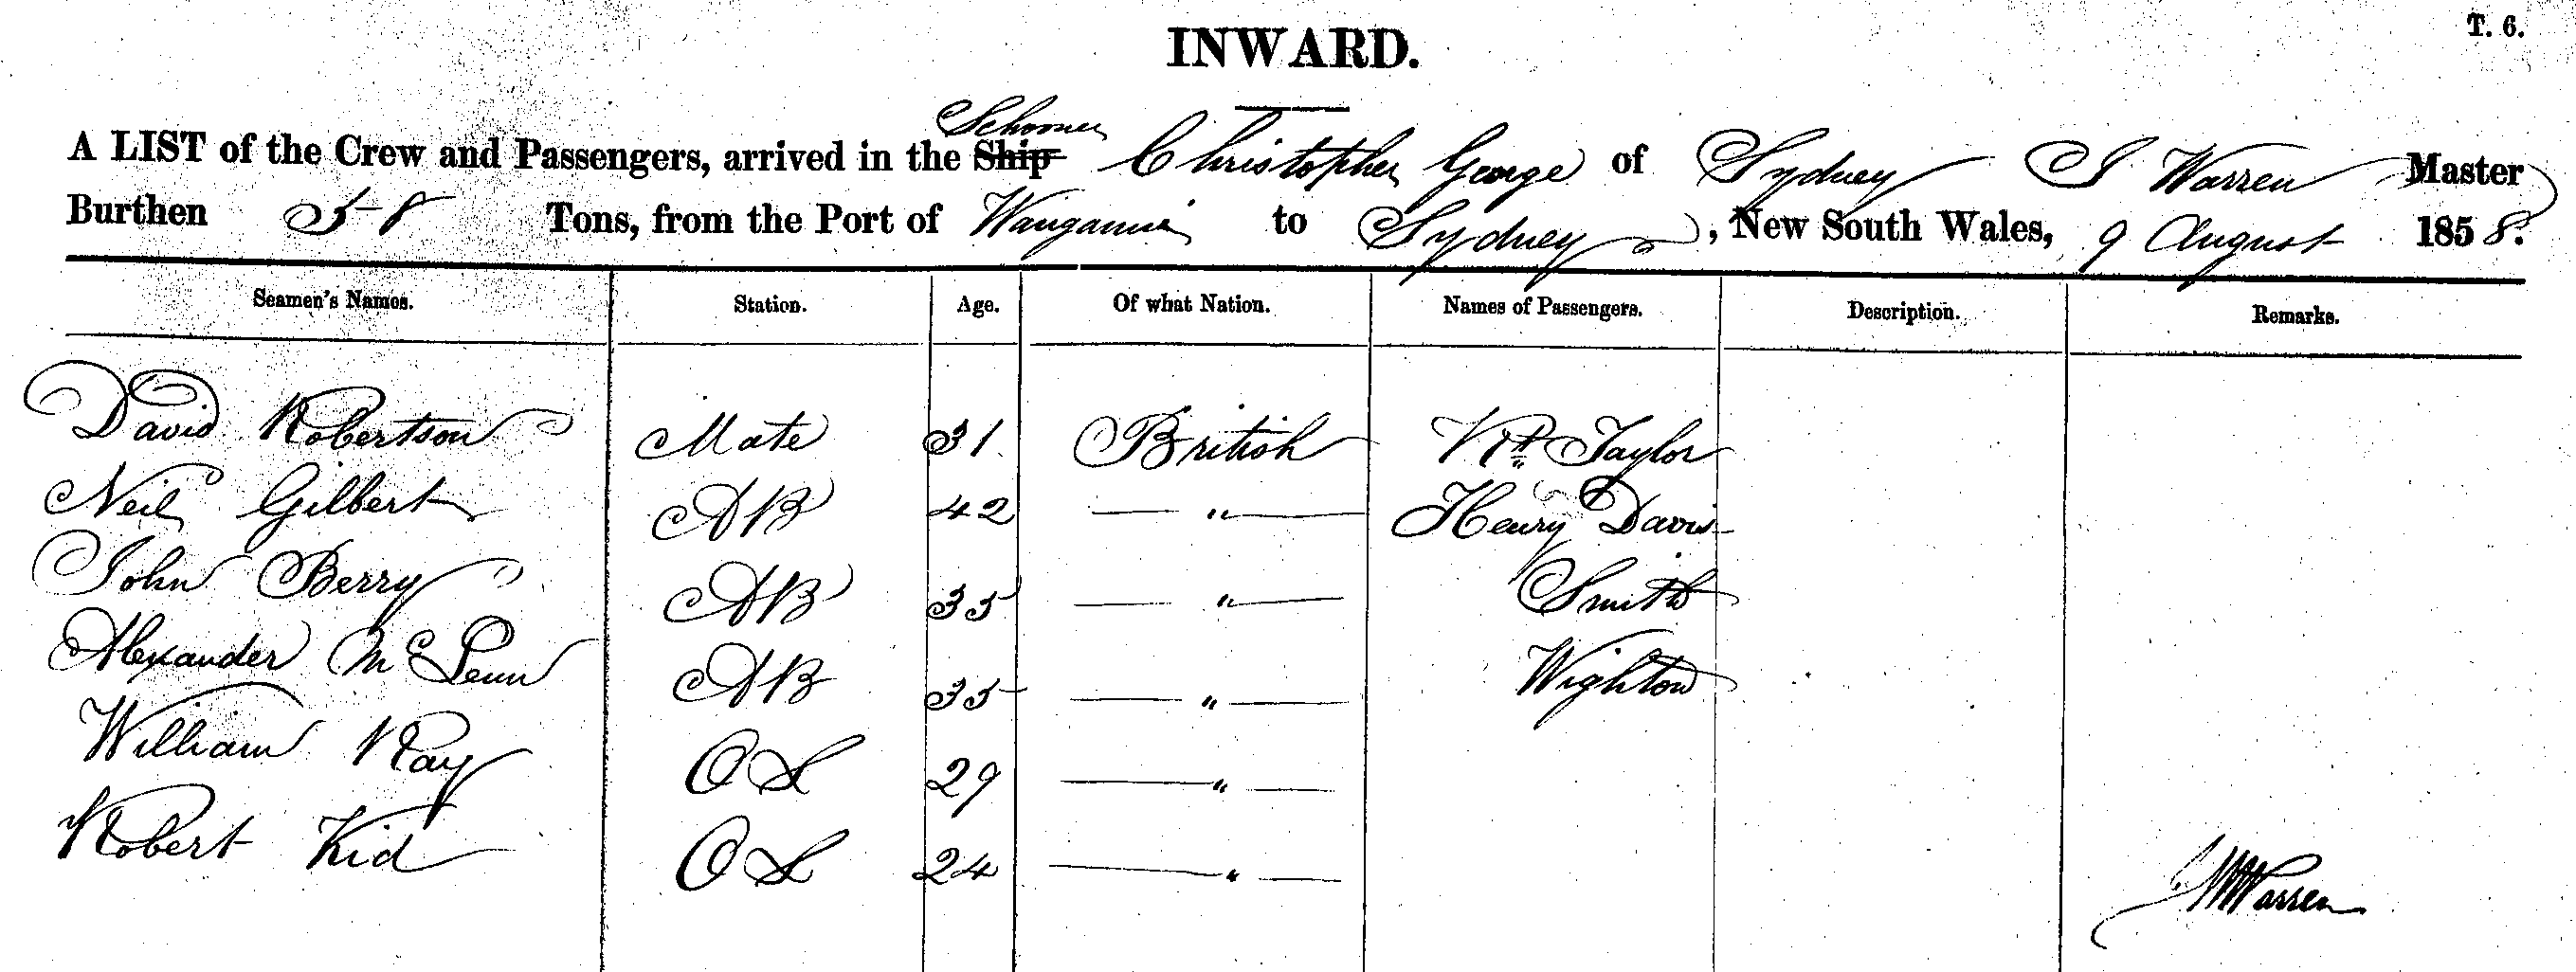 T. 6.
INWARD.
Schooner
A LIST of the Crew and Passengers, arrived in the Ship Christopher George of Sydney J Warren Master
Burthen 58 Tons, from the Port of Wanganui to Sydney, New South Wales, 9 August 1858.
Seamen's Names. Station. Age. Of what Nation. Names of Passengers. Description. Remarks.
David Robertson Mate 31 British Taylor
Neil Gilbert AB 42 — " — Henry Davis
John Berry AB 35 — " — Smith
Alexander McLenn AB 35 — " — Wighton
William Ray OS 29 — " —
Robert Kid OS 24 — " —
Warren